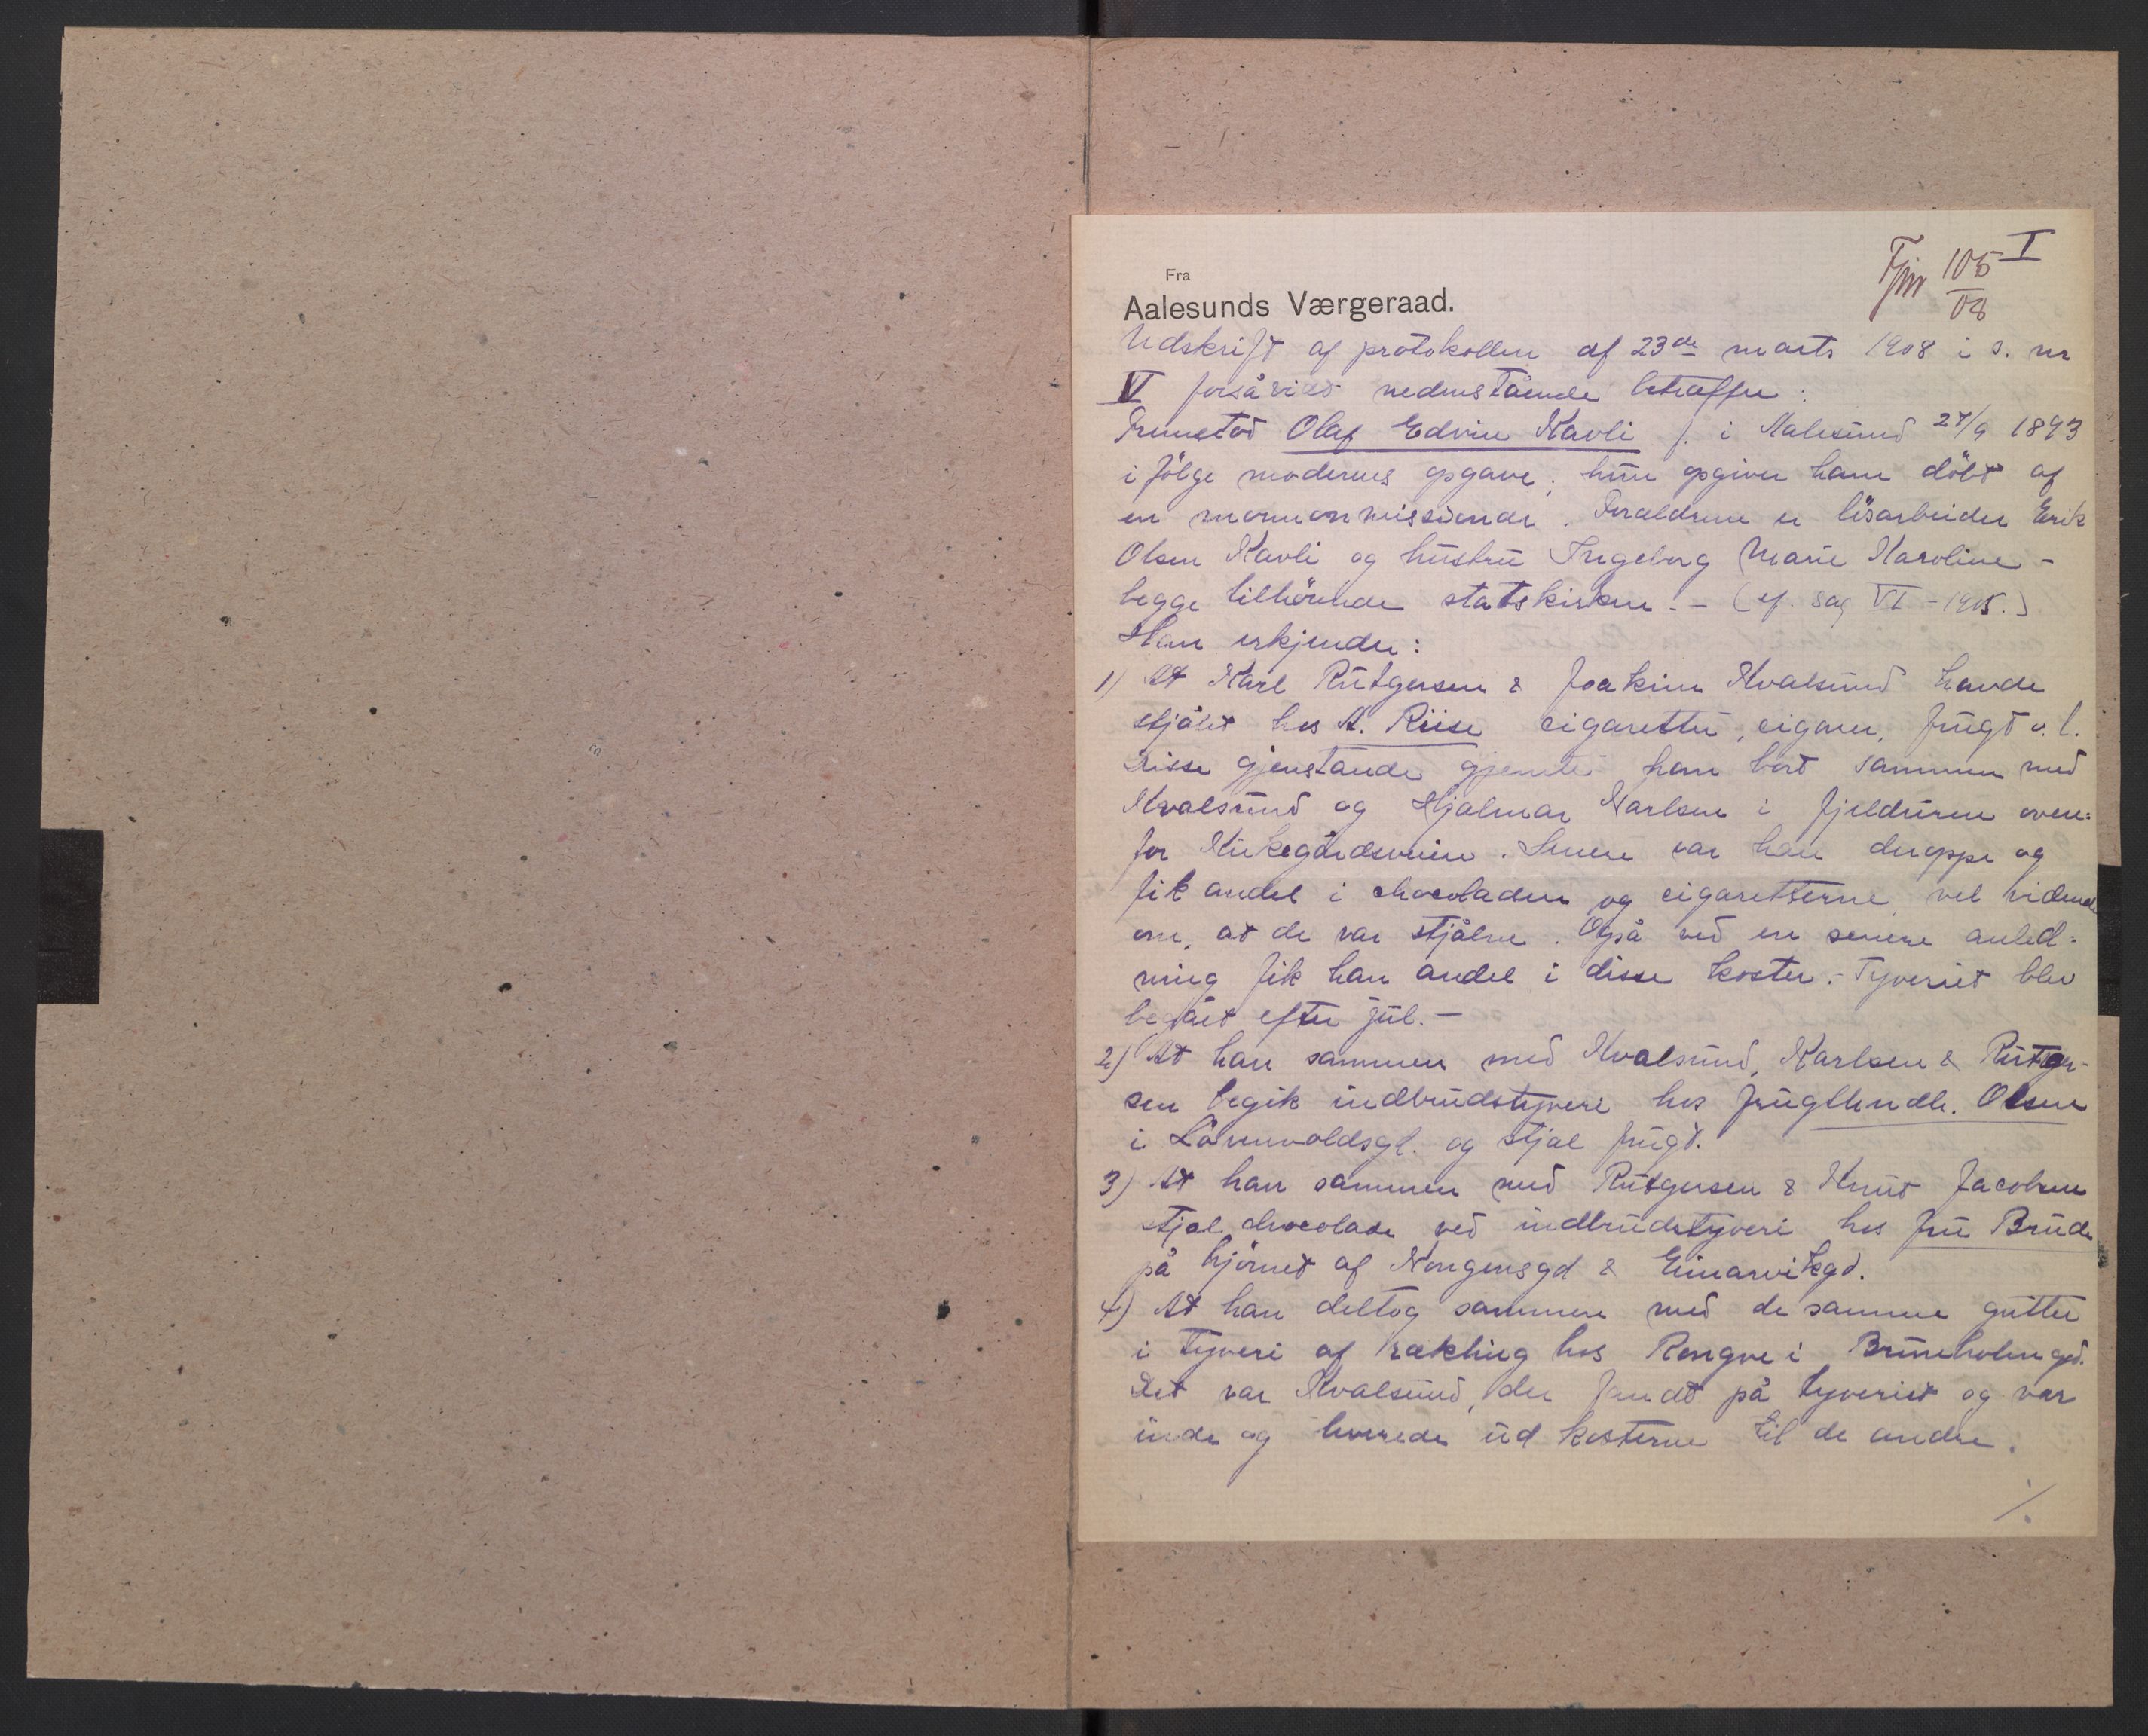 I
Fjnr 105/08
Fra
Aalesunds Værgeraad.
Udskrift af protokollen af 23de marts 1908 i s. nr
V forsåvidt nedenstående betræffer:
Fremstod Olaf Edvin Kavli f. i Aalesund 27/9 1893
i følge moderens opgave; hun opgiver ham döbt af
en mormonmissionær. Forældrene er lösarbeider Erik
Olsen Kavli og hustru Ingeborg Marie Karoline -
begge tilhörende statskirken. - (cf. sag VI - 1905.)
Han erkjender:
1) At Karl Rütgersen & Joakim Kvalsund havde
stjålet hos A. Riise cigaretter, cigarer, frugt o. l.
Disse gjenstande gjemte han bort sammen med
Kvalsund og Hjalmar Karlsen i fjeldruren oven=
for Kirkegårdsveien. Senere var han deroppe og
fik andel i chocoladen og cigaretterne, vel vidende
om, at de var stjålne. Også ved en senere anled=
ning fik han andel i disse koster. - Tyveriet blev
begået efter jul. -
2) At han sammen med Kvalsund, Karlsen & Rütger-
sen begik indbrudstyveri hos frugthndl. Olsen
i Lövenvoldsgd. og stjal frugt.
3) At han sammen med Rütgersen & Knut Jacobsen
stjal chocolade ved indbrudstyveri hos fru Brude
på hjörnet af Nongensgd & Einarvikgd.
4) At han deltog sammen med de samme gutter
i tyveri af rækling hos Rongve i Bruneholmgd.
Det var Kvalsund, der fandt på tyveriet og var
inde og leverede ud kosterne til de andre.
./.